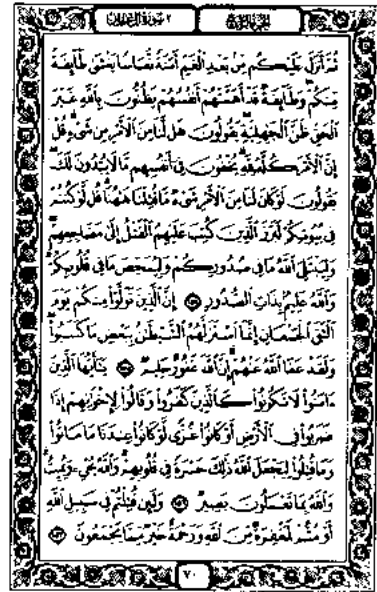 الجزء الرابع ٣ سورة آل عمران
ثُمَّ أَنزَلَ عَلَيْكُم مِّنۢ بَعْدِ ٱلْغَمِّ أَمَنَةً نُّعَاسًا يَغْشَىٰ طَآئِفَةً
مِّنكُمْ وَطَآئِفَةٌ قَدْ أَهَمَّتْهُمْ أَنفُسُهُمْ يَظُنُّونَ بِٱللَّهِ غَيْرَ
ٱلْحَقِّ ظَنَّ ٱلْجَٰهِلِيَّةِ يَقُولُونَ هَل لَّنَا مِنَ ٱلْأَمْرِ مِن شَىْءٍ قُلْ
إِنَّ ٱلْأَمْرَ كُلَّهُۥ لِلَّهِ يُخْفُونَ فِىٓ أَنفُسِهِم مَّا لَا يُبْدُونَ لَكَ
يَقُولُونَ لَوْ كَانَ لَنَا مِنَ ٱلْأَمْرِ شَىْءٌ مَّا قُتِلْنَا هَٰهُنَا قُل لَّوْ كُنتُمْ
فِى بُيُوتِكُمْ لَبَرَزَ ٱلَّذِينَ كُتِبَ عَلَيْهِمُ ٱلْقَتْلُ إِلَىٰ مَضَاجِعِهِمْ
وَلِيَبْتَلِىَ ٱللَّهُ مَا فِى صُدُورِكُمْ وَلِيُمَحِّصَ مَا فِى قُلُوبِكُمْ
وَٱللَّهُ عَلِيمٌۢ بِذَاتِ ٱلصُّدُورِ ١٥٤ إِنَّ ٱلَّذِينَ تَوَلَّوْا۟ مِنكُمْ يَوْمَ
ٱلْتَقَى ٱلْجَمْعَانِ إِنَّمَا ٱسْتَزَلَّهُمُ ٱلشَّيْطَٰنُ بِبَعْضِ مَا كَسَبُوا۟
وَلَقَدْ عَفَا ٱللَّهُ عَنْهُمْ إِنَّ ٱللَّهَ غَفُورٌ حَلِيمٌ ١٥٥ يَٰٓأَيُّهَا ٱلَّذِينَ
ءَامَنُوا۟ لَا تَكُونُوا۟ كَٱلَّذِينَ كَفَرُوا۟ وَقَالُوا۟ لِإِخْوَٰنِهِمْ إِذَا
ضَرَبُوا۟ فِى ٱلْأَرْضِ أَوْ كَانُوا۟ غُزًّى لَّوْ كَانُوا۟ عِندَنَا مَا مَاتُوا۟
وَمَا قُتِلُوا۟ لِيَجْعَلَ ٱللَّهُ ذَٰلِكَ حَسْرَةً فِى قُلُوبِهِمْ وَٱللَّهُ يُحْىِۦ وَيُمِيتُ
وَٱللَّهُ بِمَا تَعْمَلُونَ بَصِيرٌ ١٥٦ وَلَئِن قُتِلْتُمْ فِى سَبِيلِ ٱللَّهِ
أَوْ مُتُّمْ لَمَغْفِرَةٌ مِّنَ ٱللَّهِ وَرَحْمَةٌ خَيْرٌ مِّمَّا يَجْمَعُونَ ١٥٧
٧٠